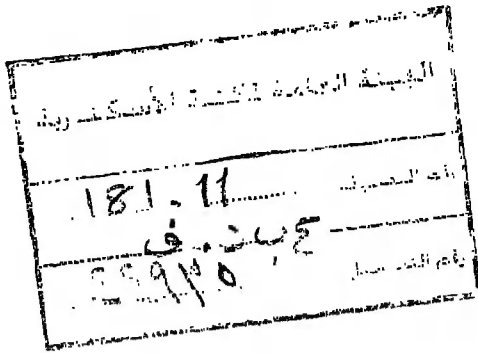 الهيئة العامة لمكتبة الأسكندرية
رقم التصنيف 181.11
ع ب ت . ف
رقم التسجيل